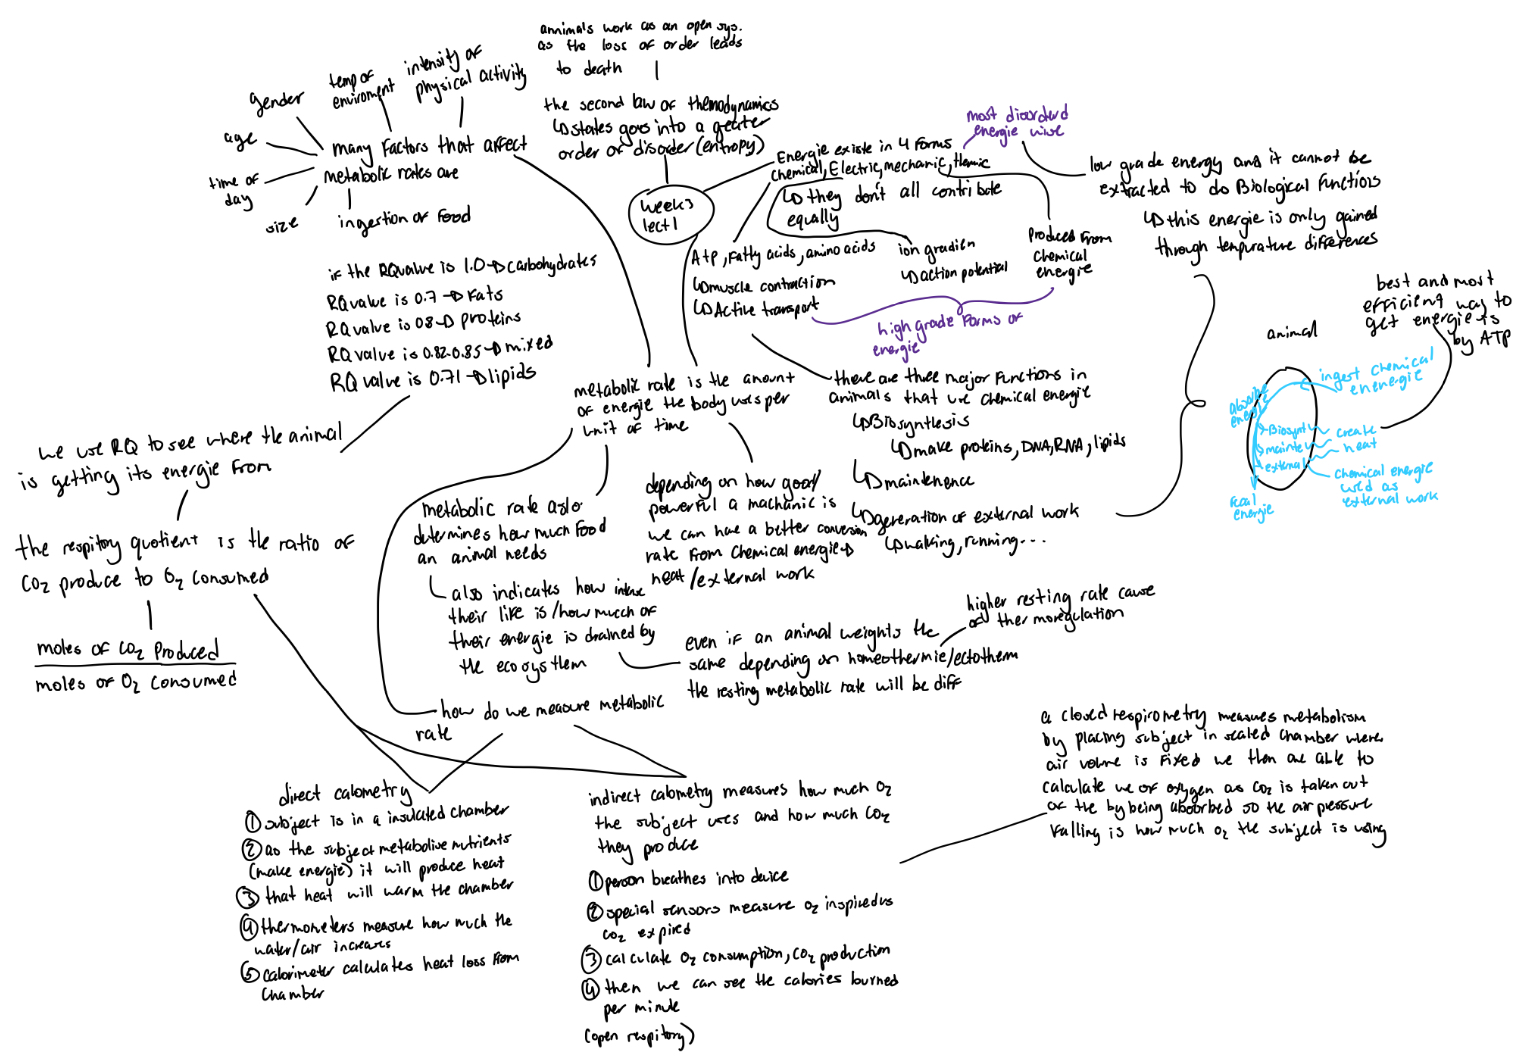 annimals work as an open sys.
as the loss of order leads
to death
the second law of themodynamics
↳states goes into a greater
order of disorder (entropy)
week 3
lect 1
gender
temp of
enviroment
intensity of
physical activity
age
many factors that affect
metabolic rates are
time of
day
size
ingestion of food
Energie existe in 4 forms
chemical, Electric, mechanic, thermic
↳ they don't all contribute
equally
most disorderd
energie wise
low grade energy and it cannot be
extracted to do Biological functions
↳ this energie is only gained
through temprature differences
Atp, fatty acids, amino acids
↳muscle contraction
↳Active transport
ion gradien
↳action potential
produced from
chemical
energie
high grade forms of
energie
if the RQ value is 1.0 → carbohydrates
RQ value is 0.7 → Fats
RQ value is 0.8 → proteins
RQ value is 0.82-0.85 → mixed
RQ value is 0.71 → lipids
we use RQ to see where the animal
is getting its energie from
the respitory quotient is the ratio of
CO2 produce to O2 consumed
moles of CO2 produced
moles of O2 consumed
metabolic rate is the amount
of energie the body uses per
unit of time
metabolic rate aslo
determines how much food
an animal needs
also indicates how intense
their life is/how much of
their energie is drained by
the ecosystem
depending on how good/
powerful a machanic is
we can have a better conversion
rate from chemical energie →
heat/external work
there are three major functions in
animals that use chemical energie
↳Biosynthesis
↳make proteins, DNA, RNA, lipids
↳maintenence
↳generation of external work
↳walking, running...
best and most
efficient way to
get energie is
by ATP
animal
ingest chemical
enenergie
absorbe
energie
Biosynt
mainte
external
create
heat
chemical energie
used as
external work
fecal
energie
even if an animal weights the
same depending on homeothermie/ectotherm
the resting metabolic rate will be diff
higher resting rate cause
of thermoregulation
how do we measure metabolic
rate
direct calometry
① subject is in a insulated chamber
② as the subject metabolise nutrients
(make energie) it will produce heat
③ that heat will warm the chamber
④ thermometers measure how much the
water/air increases
⑤ calorimeter calculates heat loss from
chamber
indirect calometry measures how much O2
the subject uses and how much CO2
they produce
① person breathes into device
② special sensors measure O2 inspired vs
CO2 expired
③ calculate O2 consumption, CO2 production
④ then we can see the calories burned
per minute
(open respitory)
a closed respirometry measures metabolism
by placing subject in sealed chamber where
air volume is fixed we then are able to
calculate use of oxygen as CO2 is taken out
of the by being absorbed so the air pressure
falling is how much O2 the subject is using